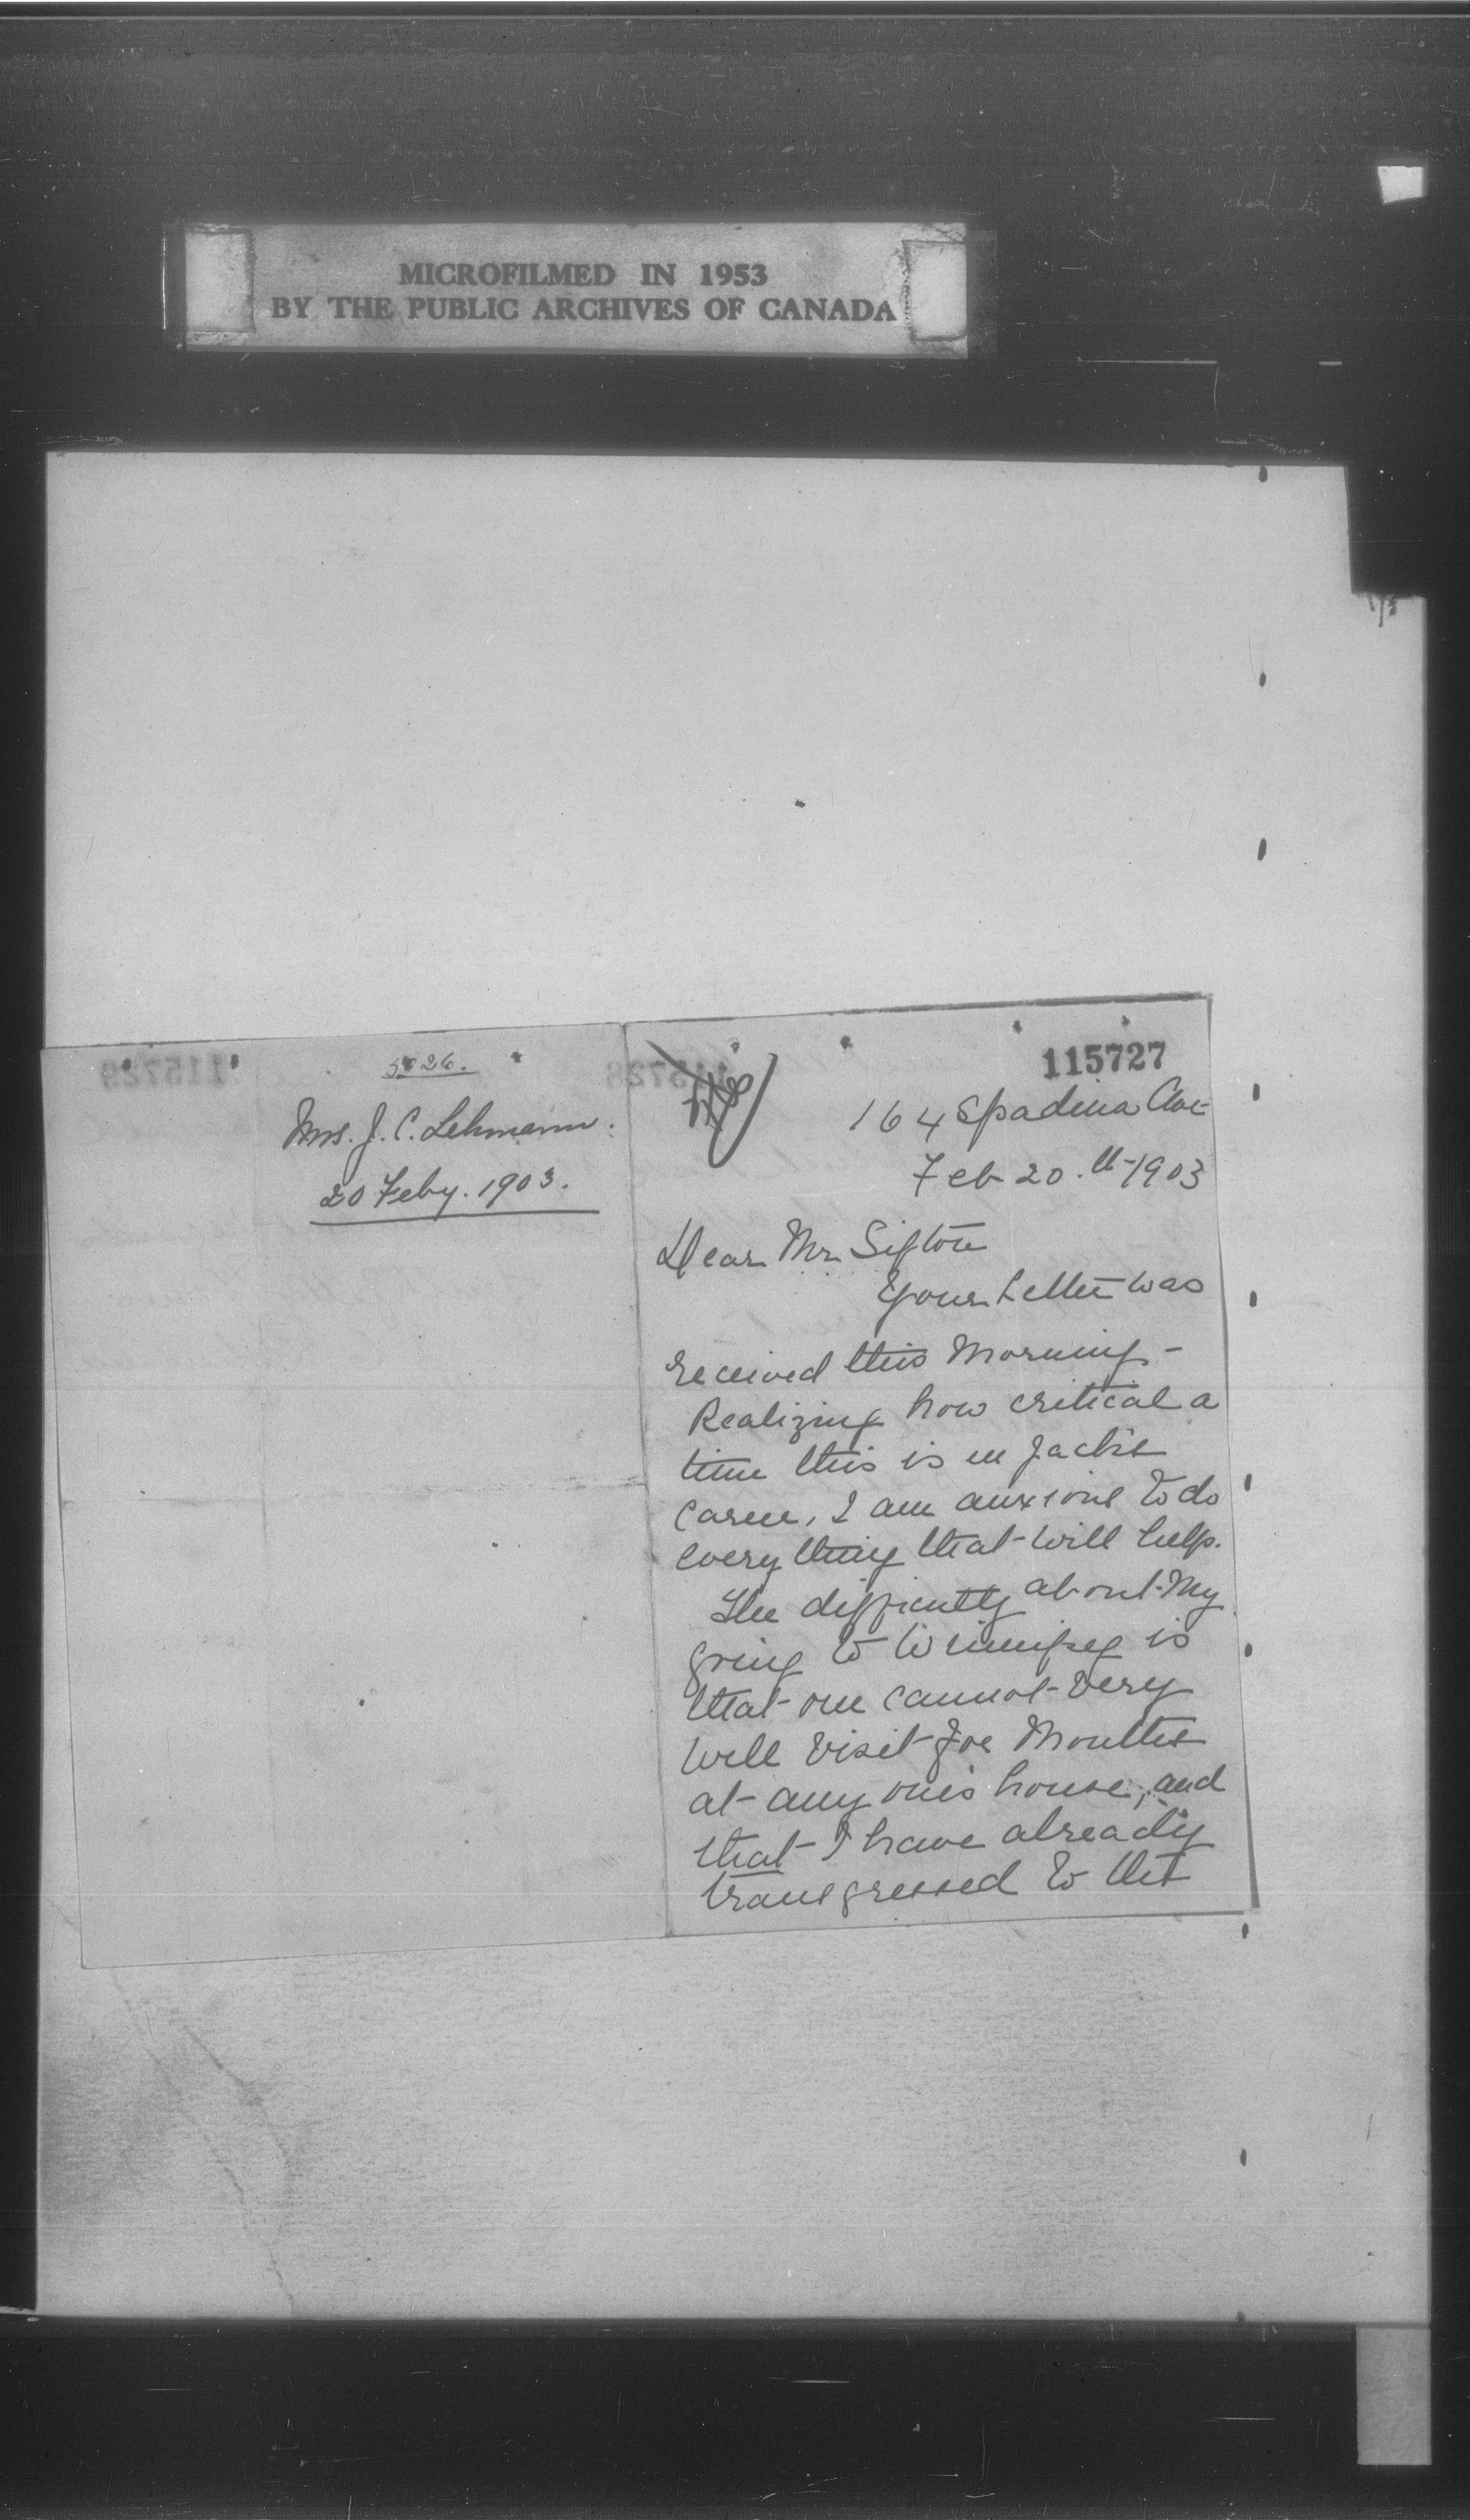 MICROFILMED IN 1953
BY THE PUBLIC ARCHIVES OF CANADA
5026.
Mrs. J. C. Lehmann.
20 Feby. 1903.
115727
164 Spadina Ave
Feb 20.th 1903
Dear Mr Sifton
Your letter was
received this morning -
Realizing how critical a
time this is in Jack's
career, I am anxious to do
every thing that will help.
The difficulty about my
going to Winnipeg is
that one cannot very
well visit for months
at any one's house; and
that I have already
transgressed to the